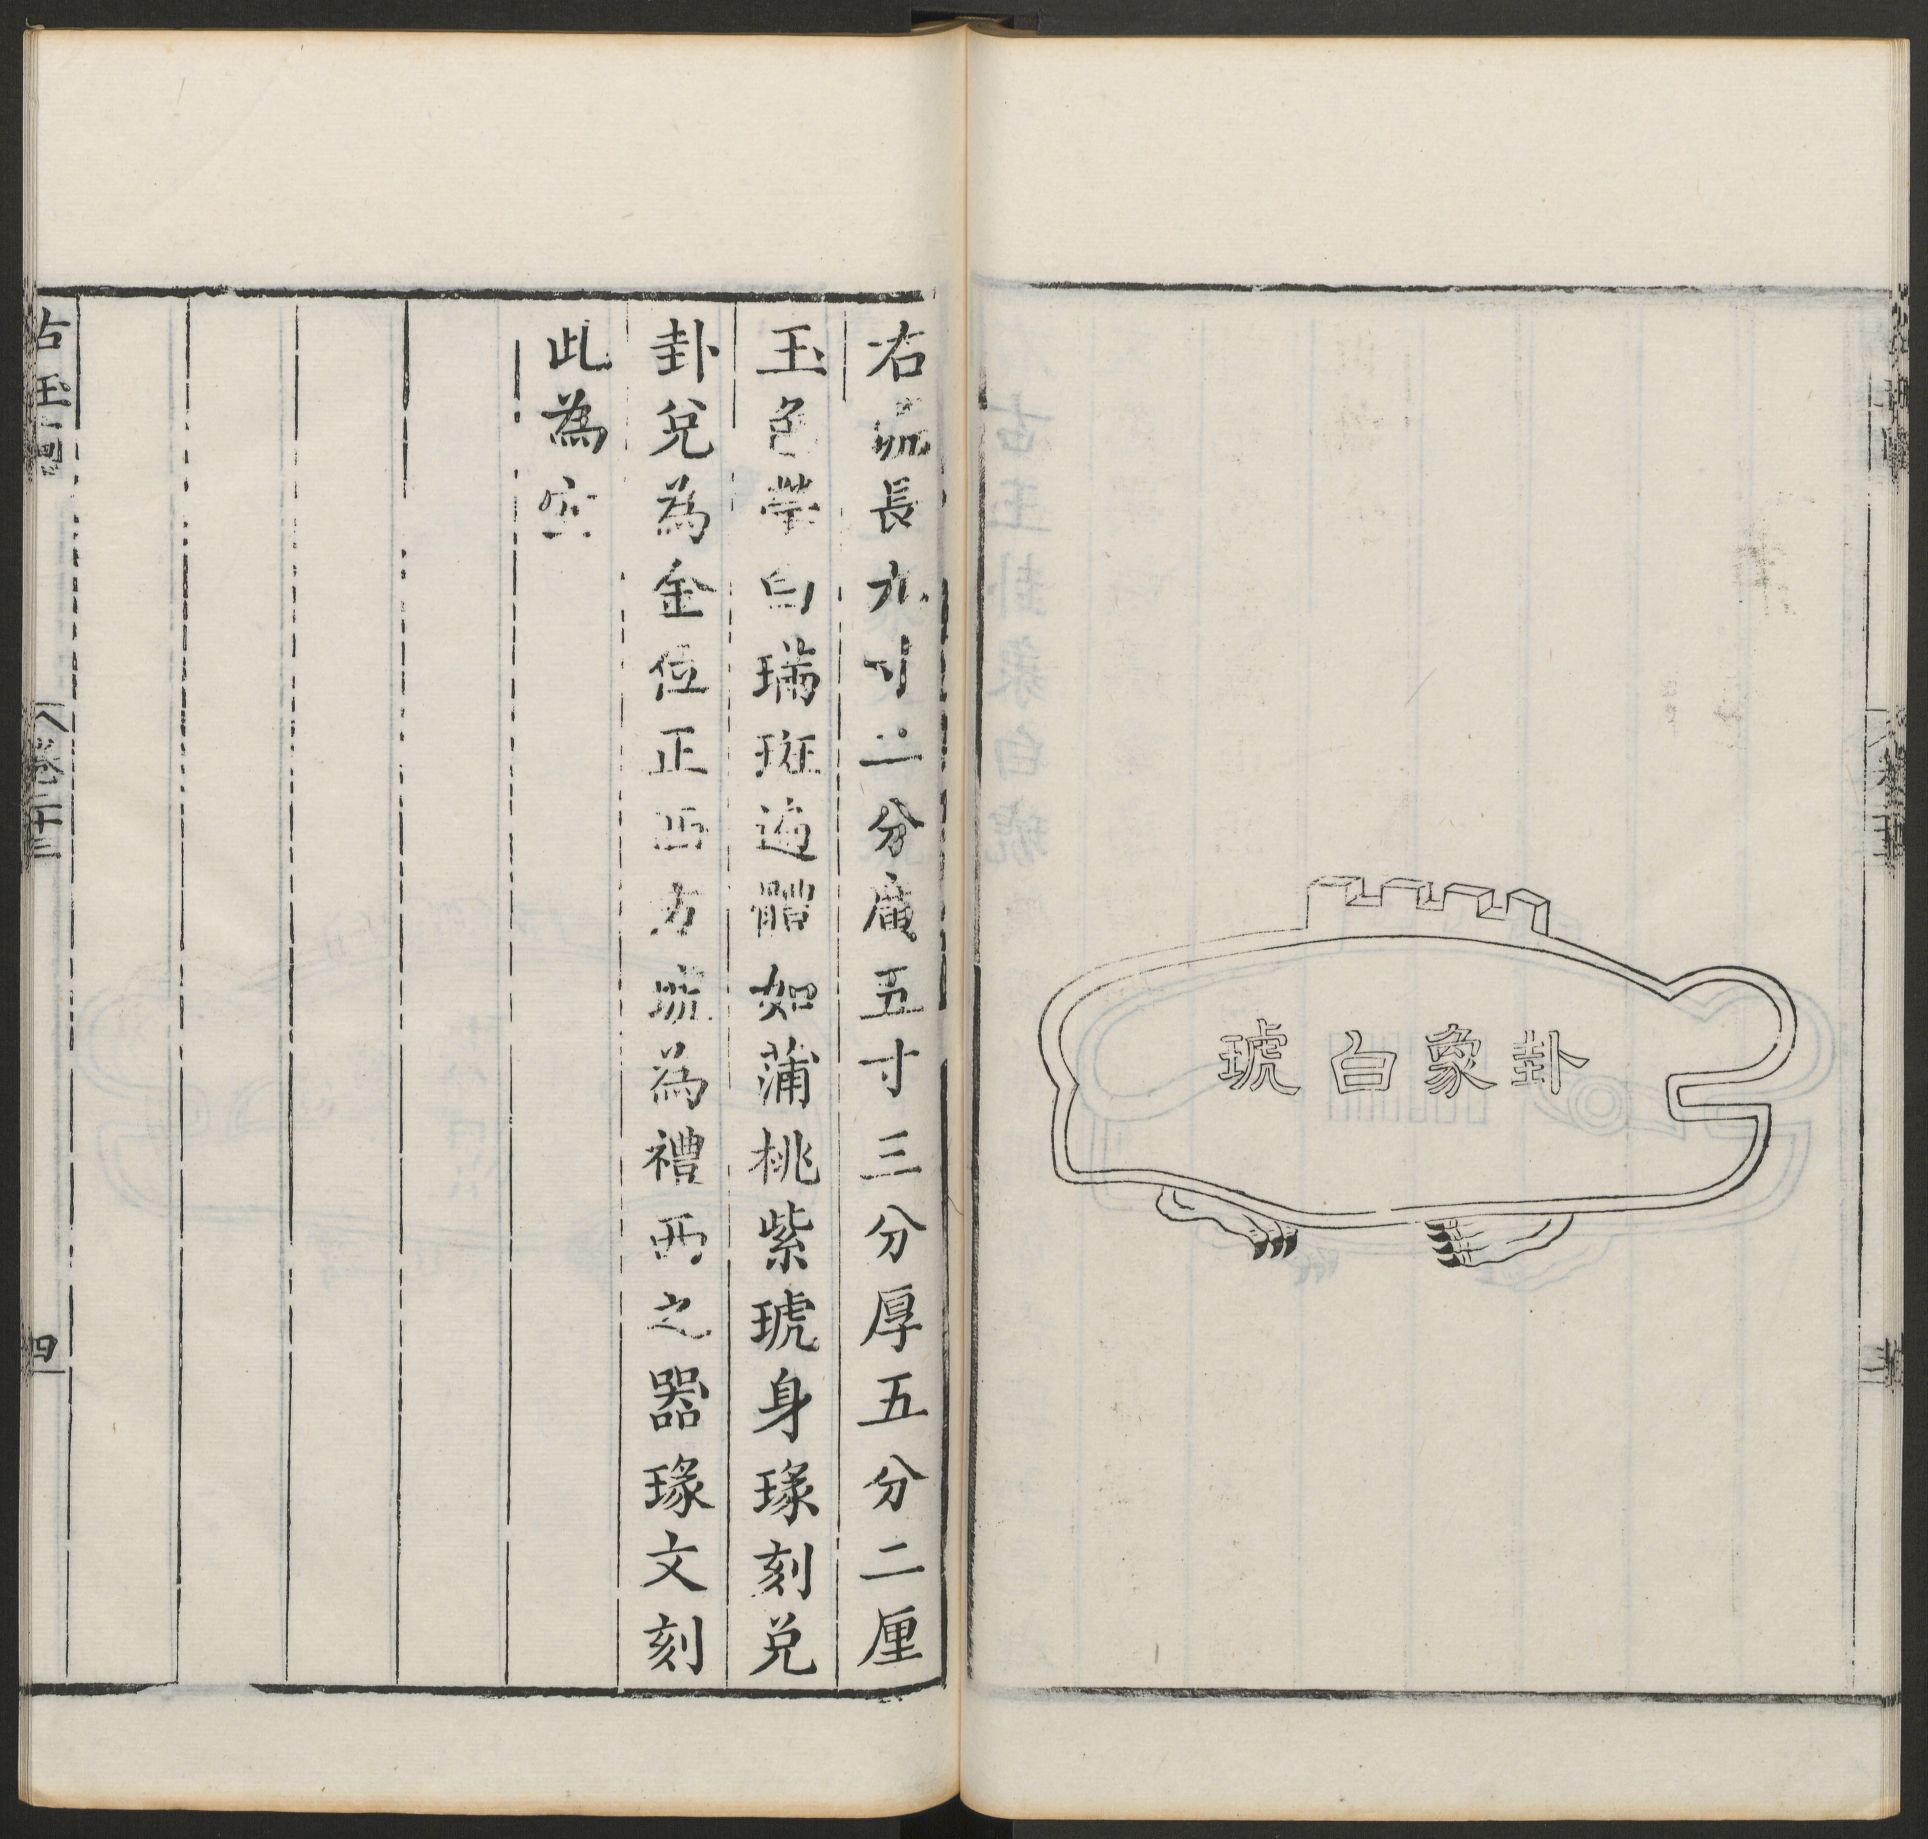 卦象白琥
右琥長九寸二分廣五寸三分厚五分二厘
玉色瑩白璊斑遍體如蒲桃紫琥身瑑刻兌
卦兌為金位正西方琥為禮西之器瑑文刻
此為宜
古玉圖
卷二十三
四